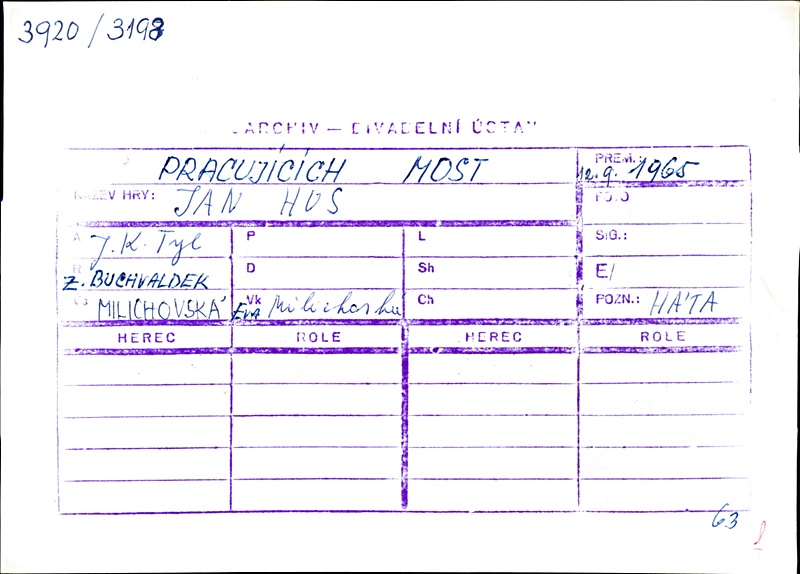 3920 / 3198
ARCHIV — DIVADELNÍ ÚSTAV
PRACUJÍCÍCH MOST
PREM.: 12.9. 1965
NÁZEV HRY: JAN HUS
FOTO
A J. K. Tyl
P
L
SIG.:
R Z. BUCHVALDEK
D
Sh
E/
Vs MILICHOVSKÁ
Vk EVA
Ch
POZN.: HÁTA
HEREC ROLE HEREC ROLE
63